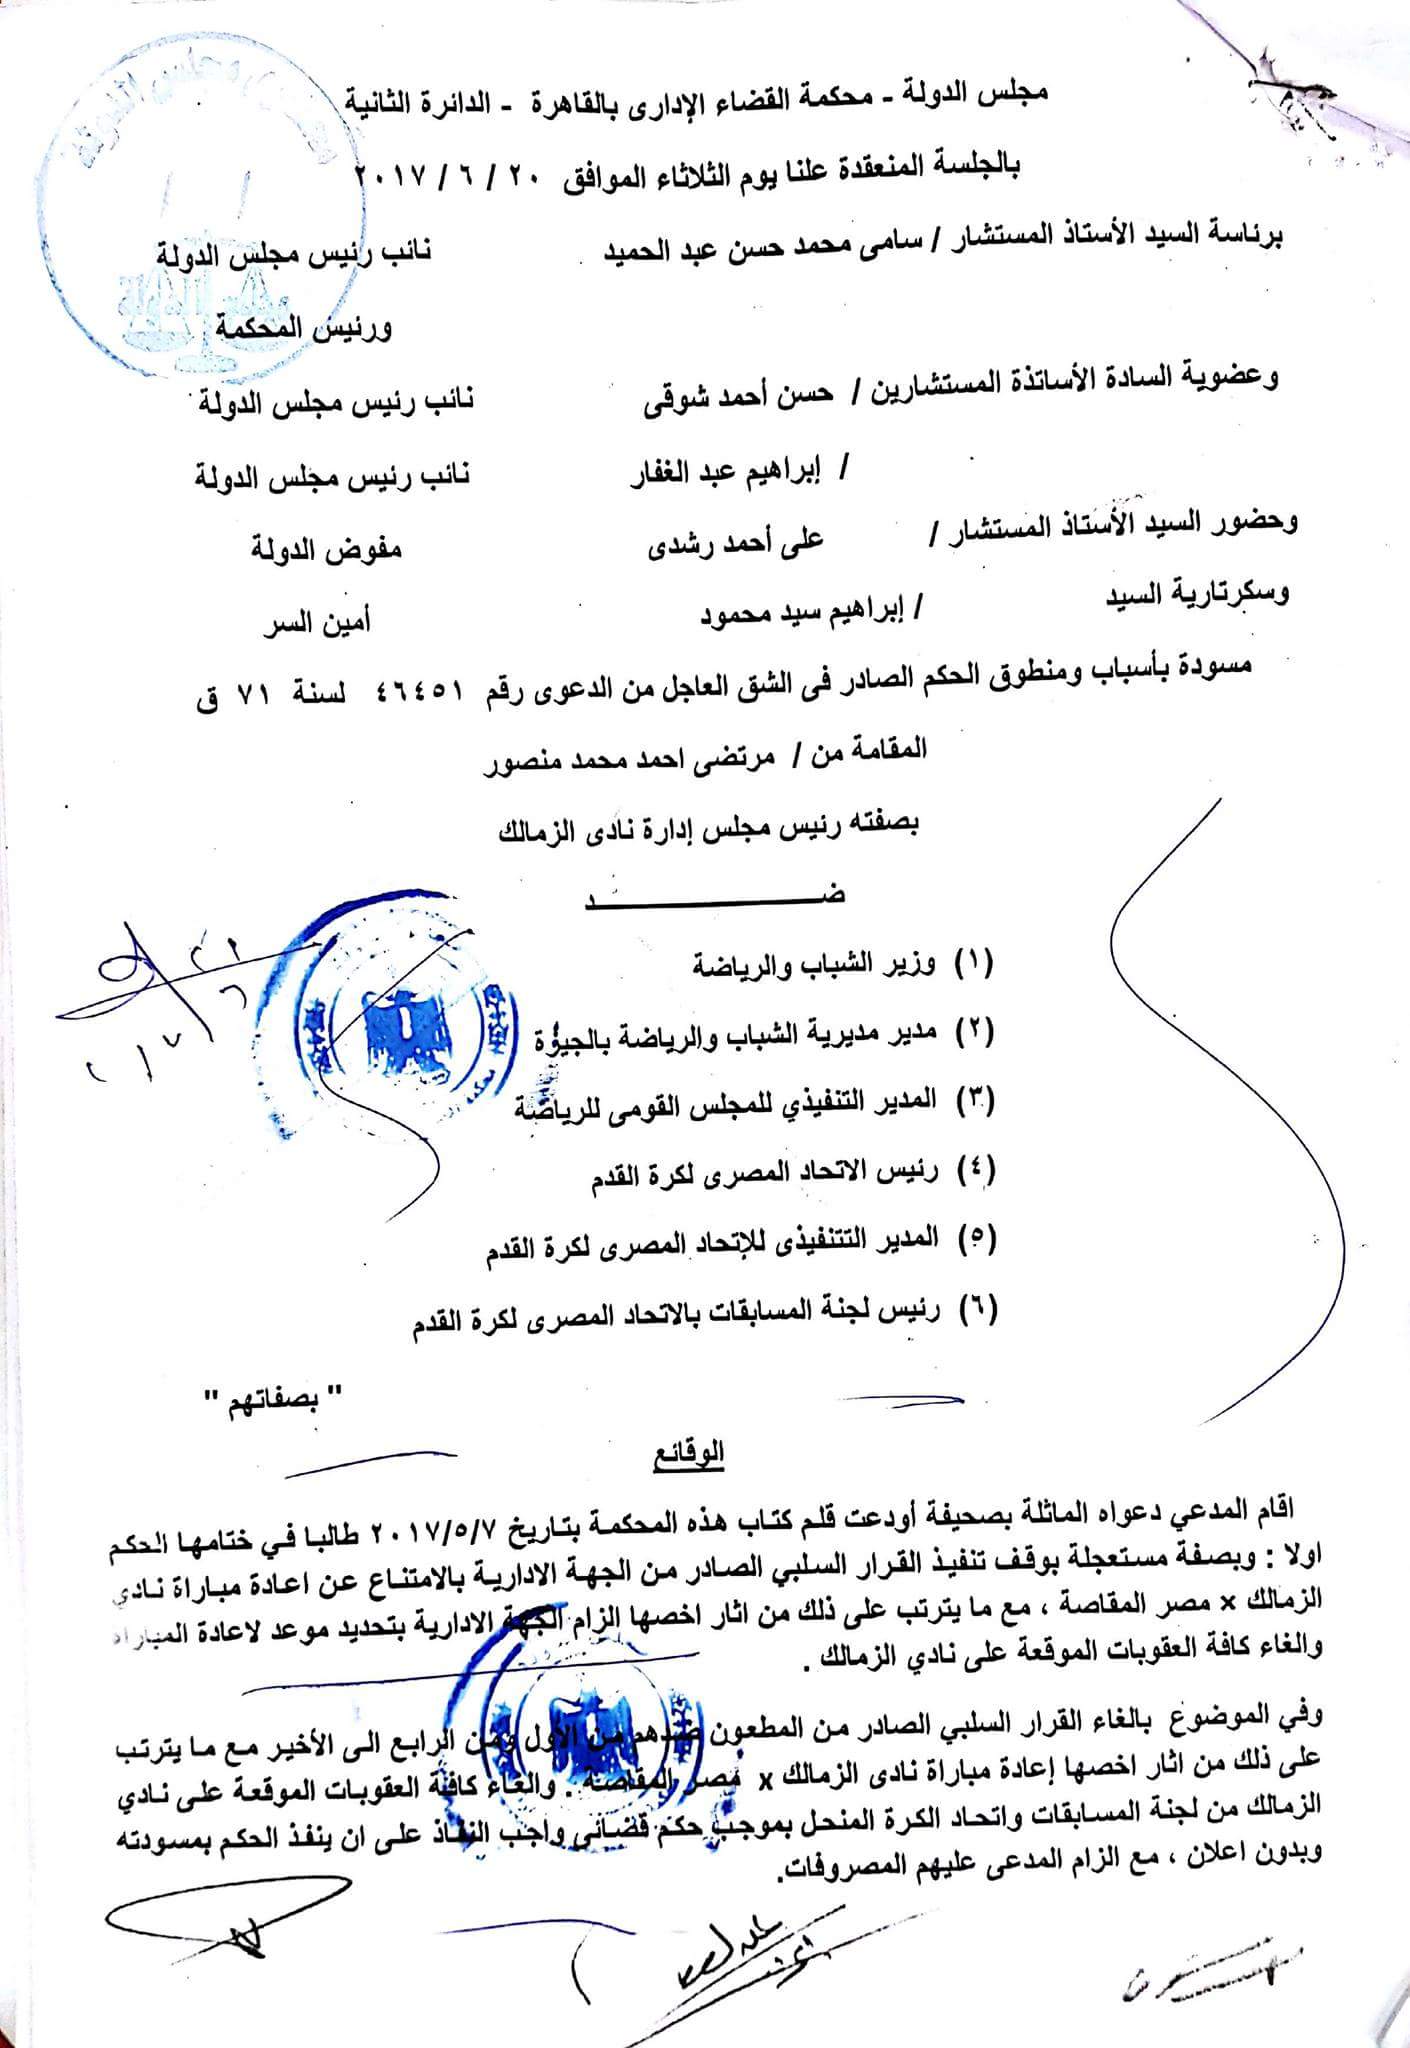 مجلس الدولة - محكمة القضاء الإدارى بالقاهرة - الدائرة الثانية
بالجلسة المنعقدة علنا يوم الثلاثاء الموافق ٢٠ / ٦ / ٢٠١٧
برئاسة السيد الأستاذ المستشار / سامى محمد حسن عبد الحميد نائب رئيس مجلس الدولة
ورئيس المحكمة
وعضوية السادة الأساتذة المستشارين / حسن أحمد شوقى نائب رئيس مجلس الدولة
/ إبراهيم عبد الغفار نائب رئيس مجلس الدولة
وحضور السيد الأستاذ المستشار / على أحمد رشدى مفوض الدولة
وسكرتارية السيد / إبراهيم سيد محمود أمين السر
مسودة بأسباب ومنطوق الحكم الصادر فى الشق العاجل من الدعوى رقم ٤٦٤٥١ لسنة ٧١ ق
المقامة من / مرتضى احمد محمد منصور
بصفته رئيس مجلس إدارة نادى الزمالك
ضـــــــــد
(١) وزير الشباب والرياضة
(٢) مدير مديرية الشباب والرياضة بالجيزة
(٣) المدير التنفيذي للمجلس القومى للرياضة
(٤) رئيس الاتحاد المصرى لكرة القدم
(٥) المدير التتنفيذى للإتحاد المصرى لكرة القدم
(٦) رئيس لجنة المسابقات بالاتحاد المصرى لكرة القدم
" بصفاتهم "
الوقائع
اقام المدعي دعواه الماثلة بصحيفة أودعت قلم كتاب هذه المحكمة بتاريخ ٢٠١٧/٥/٧ طالبا في ختامها الحكم
اولا : وبصفة مستعجلة بوقف تنفيذ القرار السلبي الصادر من الجهة الادارية بالامتناع عن اعادة مباراة نادي
الزمالك × مصر المقاصة ، مع ما يترتب على ذلك من اثار اخصها الزام الجهة الادارية بتحديد موعد لاعادة المباراه
والغاء كافة العقوبات الموقعة على نادي الزمالك .
وفي الموضوع بالغاء القرار السلبي الصادر من المطعون ضدهم من الأول ومن الرابع الى الأخير مع ما يترتب
على ذلك من اثار اخصها إعادة مباراة نادى الزمالك x مصر المقاصة . والغاء كافة العقوبات الموقعة على نادي
الزمالك من لجنة المسابقات واتحاد الكرة المنحل بموجب حكم قضائى واجب النفاذ على ان ينفذ الحكم بمسودته
وبدون اعلان ، مع الزام المدعى عليهم المصروفات.